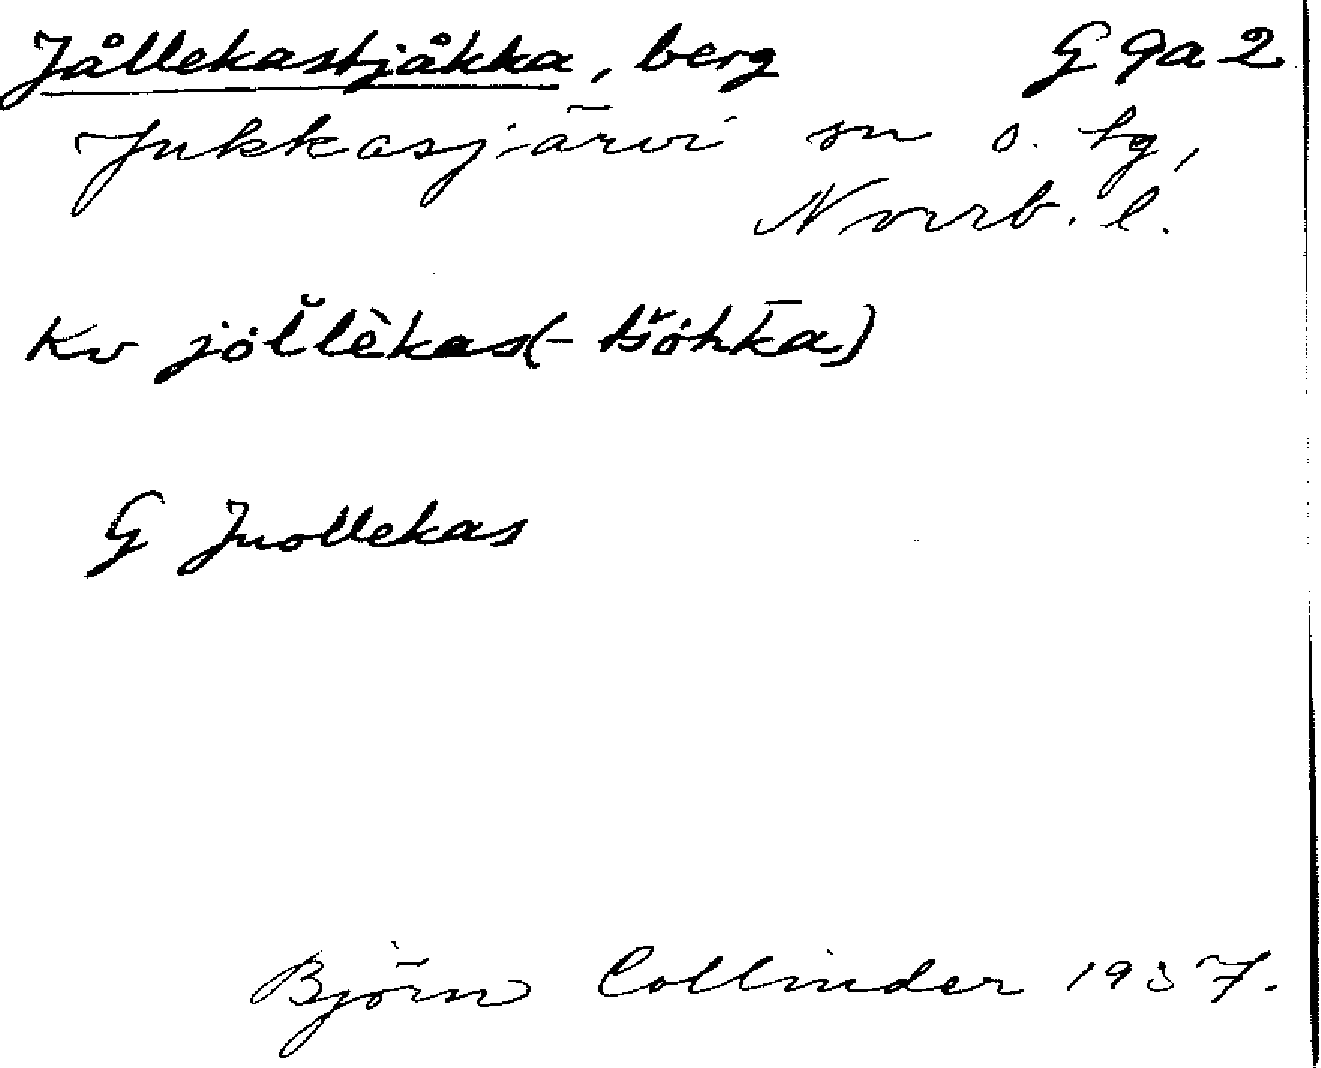 Jållekastjåkka, berg G 9a 2
Jukkasjärvi sn o. tg,
Norrb. l.
Kv jȯl̆lèkas(-tšȯhk̄a)
G Juollekas
Björn Collinder 1937.